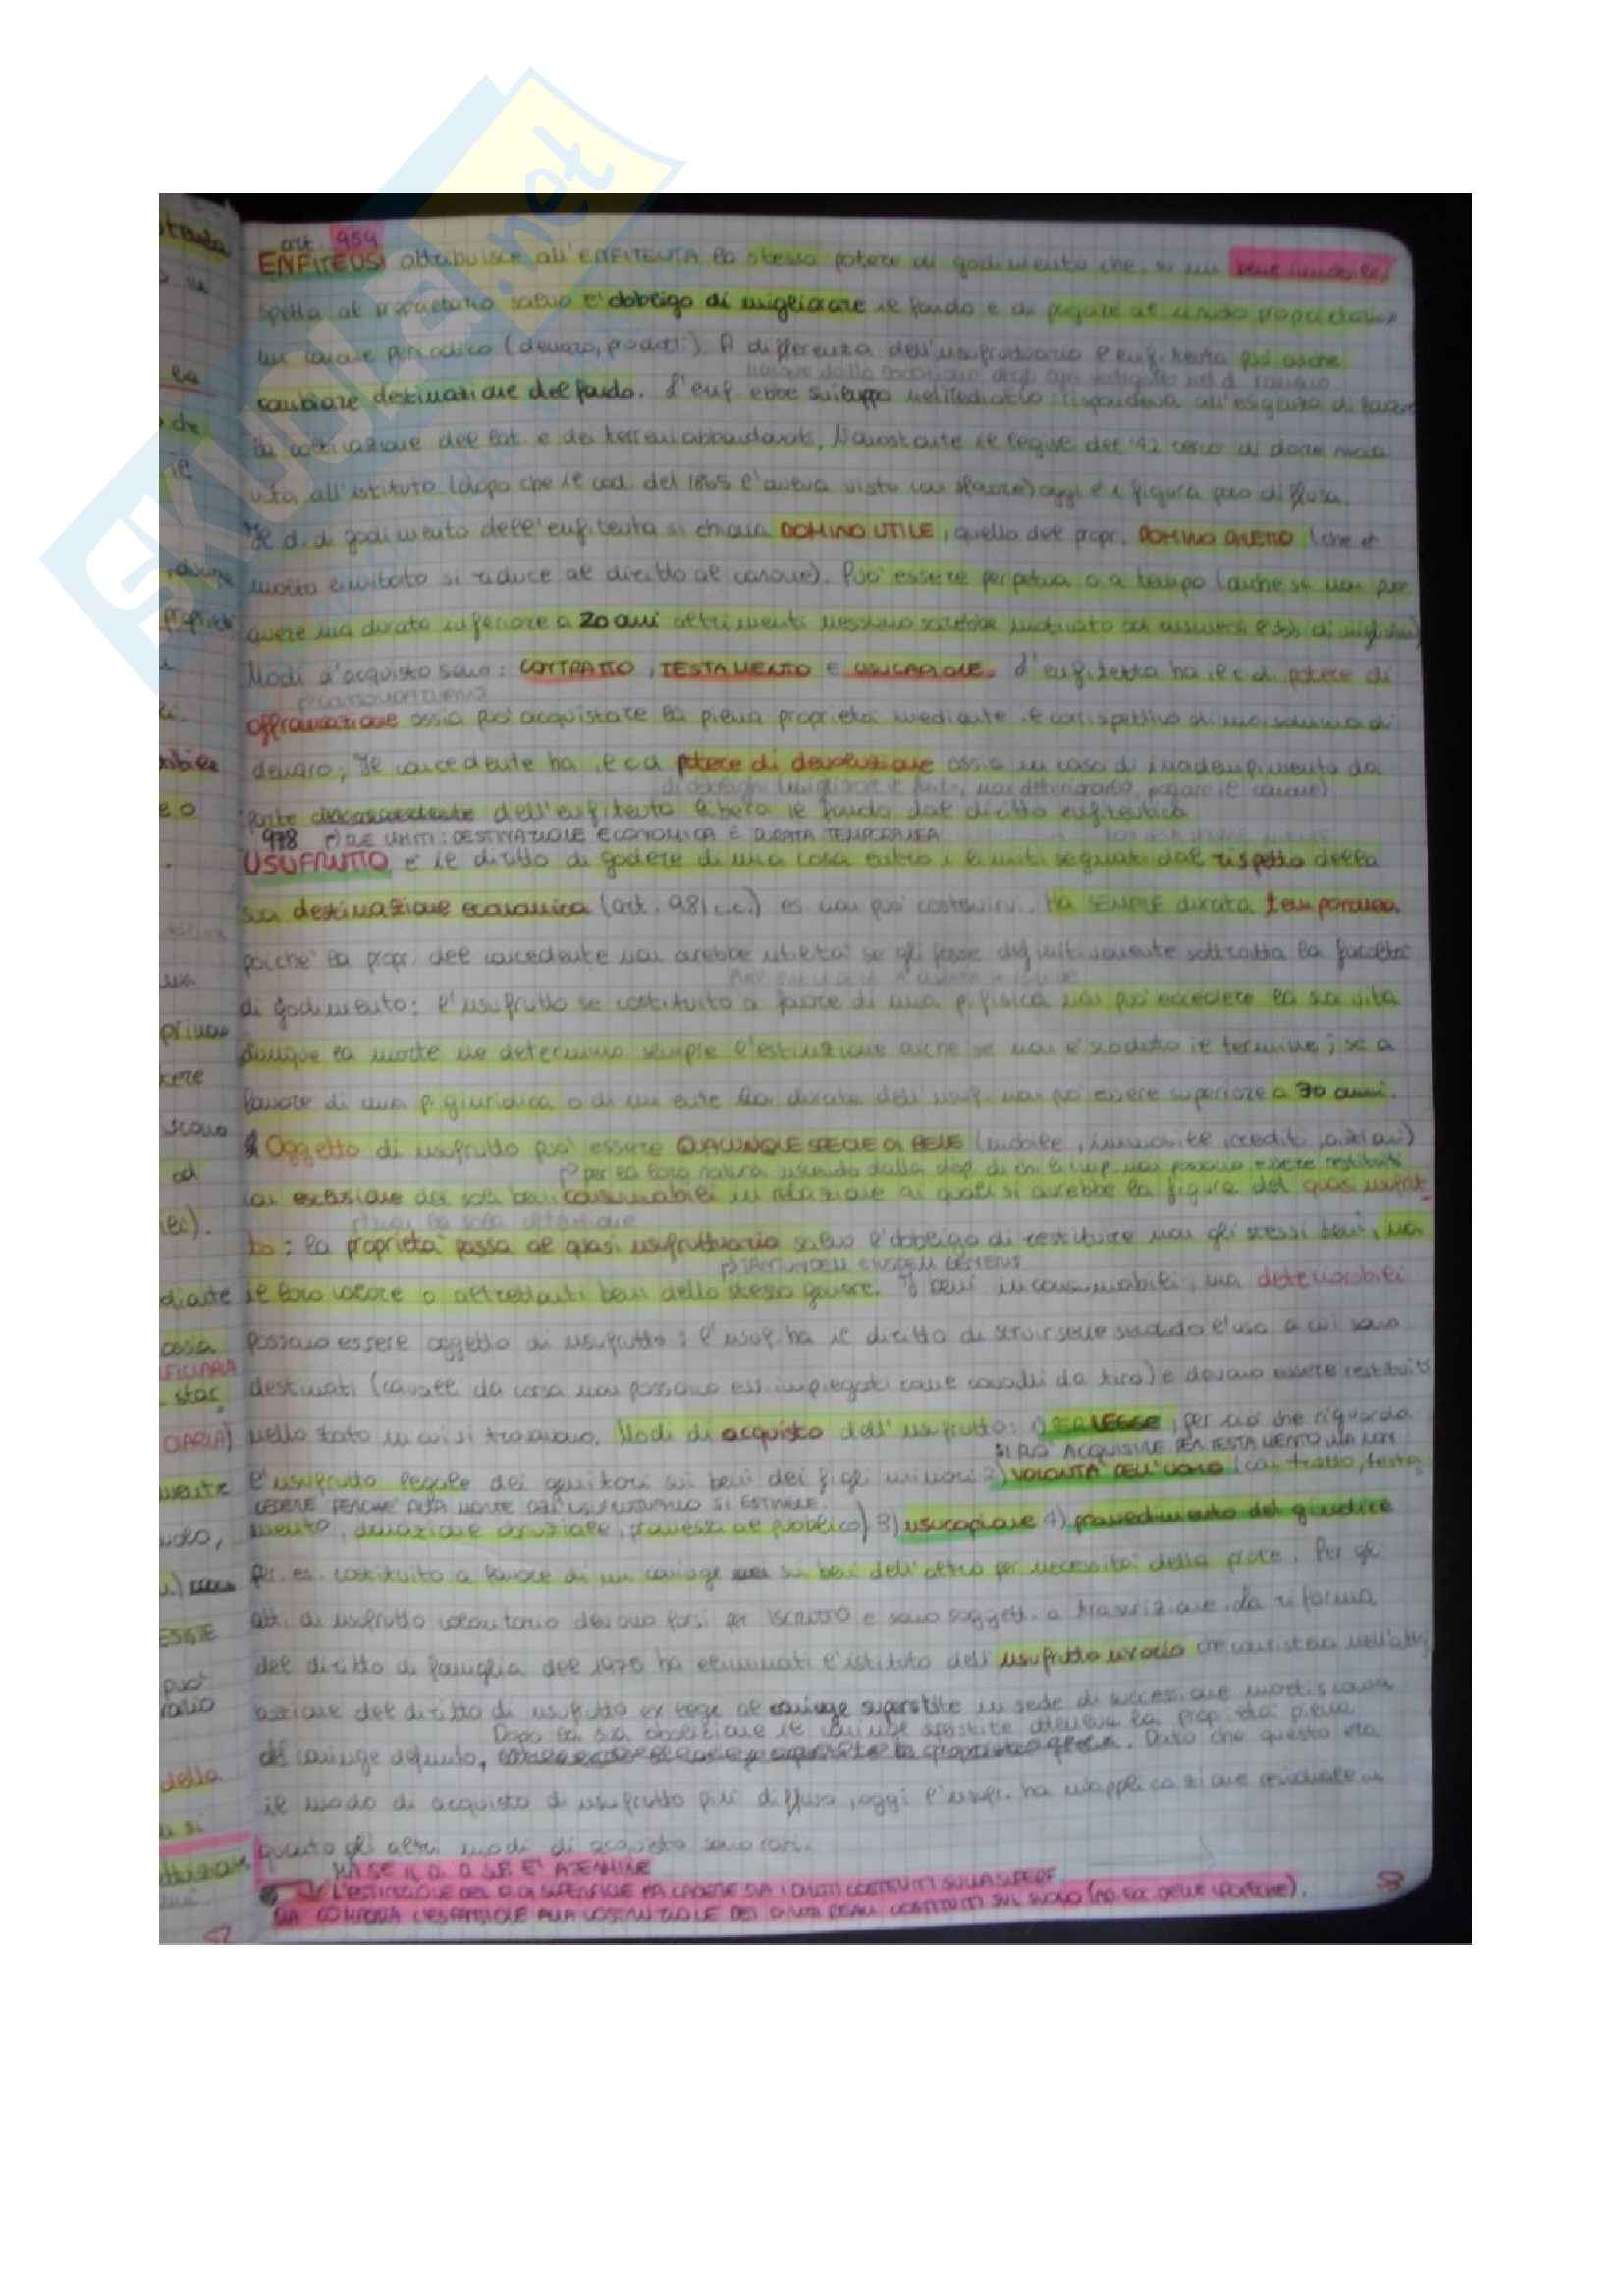 art. 954
ENFITEUSI attribuisce all'ENFITEUTA lo stesso potere di godimento che, su un bene immobile,
spetta al proprietario salvo l'obbligo di migliorare il fondo e di pagare al nudo proprietario
un canone periodico (denaro, prodotti). A differenza dell'usufruttuario l'enfiteuta può anche
cambiare destinazione del fondo. L'enf. ebbe sviluppo nel Medioevo: rispondeva all'esigenza di
la coltivazione del lat. e dei terreni abbandonati. Nonostante il legisl. del '42 cercò di dare
vita all'istituto (dopo che il cod. del 1865 l'aveva visto con sfavore) oggi è 1 figura poco diffusa.
Il d. di godimento dell'enfiteuta si chiama DOMINIO UTILE, quello del propr. DOMINIO DIRETTO (che è
molto limitato si riduce al diritto al canone). Può essere perpetua o a tempo (anche se non può
avere una durata inferiore a 20 anni altrimenti nessuno sarebbe motivato ad
Modi d'acquisto sono: CONTRATTO, TESTAMENTO E USUCAPIONE. L'enfiteuta ha il c.d. potere di
affrancazione ossia può acquistare la piena proprietà mediante il corrispettivo di una somma di
denaro; Il concedente ha il c.d. potere di devoluzione ossia in caso di inadempimento da
di obblighi (migliorare il fondo, non deteriorarlo, pagare il canone)
parte dell'enfiteuta libera il fondo dal diritto enfiteutico
978 DUE LIMITI: DESTINAZIONE ECONOMICA E DURATA TEMPORANEA
USUFRUTTO è il diritto di godere di una cosa entro i limiti segnati dal rispetto della
sua destinazione economica (art. 981 c.c.) es non può costruirvi. Ha SEMPRE durata temporanea
poiché la propr. del concedente non avrebbe utilità se gli fosse definitivamente sottratta la facoltà
di godimento: l'usufrutto se costituito a favore di una p. fisica non può eccedere la sua vita
dunque la morte ne determina sempre l'estinzione anche se non è scaduto il termine; se a
favore di una p. giuridica o di un ente la durata dell'usuf. non può essere superiore a 30 anni.
Oggetto di usufrutto può essere QUALUNQUE SPECIE DI BENE (mobile, immobile, crediti, azioni)
per la loro natura uscendo dalla disp. di chi li imp. non possono essere restituiti
con esclusione dei soli beni consumabili in relazione ai quali si avrebbe la figura del quasi usufrut-
non la sola detenzione
to: la proprietà passa al quasi usufruttuario salvo l'obbligo di restituire non gli stessi beni, ma
TANTUNDEM EIUSDEM GENERIS
il loro valore o altrettanti beni dello stesso genere. I beni inconsumabili, ma deteriorabili
possono essere oggetto di usufrutto: l'usuf. ha il diritto di servirsene secondo l'uso a cui sono
destinati (cavalli da corsa non possono ess impiegati come cavalli da tiro) e devono essere restituiti
nello stato in cui si trovano. Modi di acquisto dell'usufrutto: 1) PER LEGGE, per ciò che riguarda
SI PUÒ ACQUISIRE PER TESTAMENTO MA NON
l'usufrutto legale dei genitori sui beni dei figli minori 2) VOLONTÀ DELL'UOMO (contratto, testa-
CEDERE PERCHÉ ALLA MORTE DELL'USUFRUTTUARIO SI ESTINGUE.
mento, donazione, promessa al pubblico) 3) usucapione 4) provvedimento del giudice
per es. costituito a favore di un coniuge sui beni dell'altro per necessità della prole. Per gli
atti di usufrutto volontario devono farsi per ISCRITTO e sono soggetti a trascrizione. La riforma
del diritto di famiglia del 1975 ha eliminato l'istituto dell'usufrutto uxorio che consisteva nell'attri
buzione del diritto di usufrutto ex lege al coniuge superstite in sede di successione mortis causa
Dopo la sua abolizione il coniuge superstite otteneva la proprietà piena
del coniuge defunto, . Dato che questo era
il modo di acquisto di usufrutto più diffuso, oggi l'usufr. ha un'applicazione residuale in
quanto gli altri modi di acquisto sono rari.
MA SE IL D. DI SUP. E' A TERMINE
L'ESTINZIONE DEL D. DI SUPERFICIE FA CADERE SIA I DIRITTI COSTITUITI SULLA SUPERF.
SIA COMPORTA L'ESPANSIONE ALLA COSTRUZIONE DEI DIRITTI REALI COSTITUITI SUL SUOLO (AD ECC. DELLE IPOTECHE).
SKUOLA.net